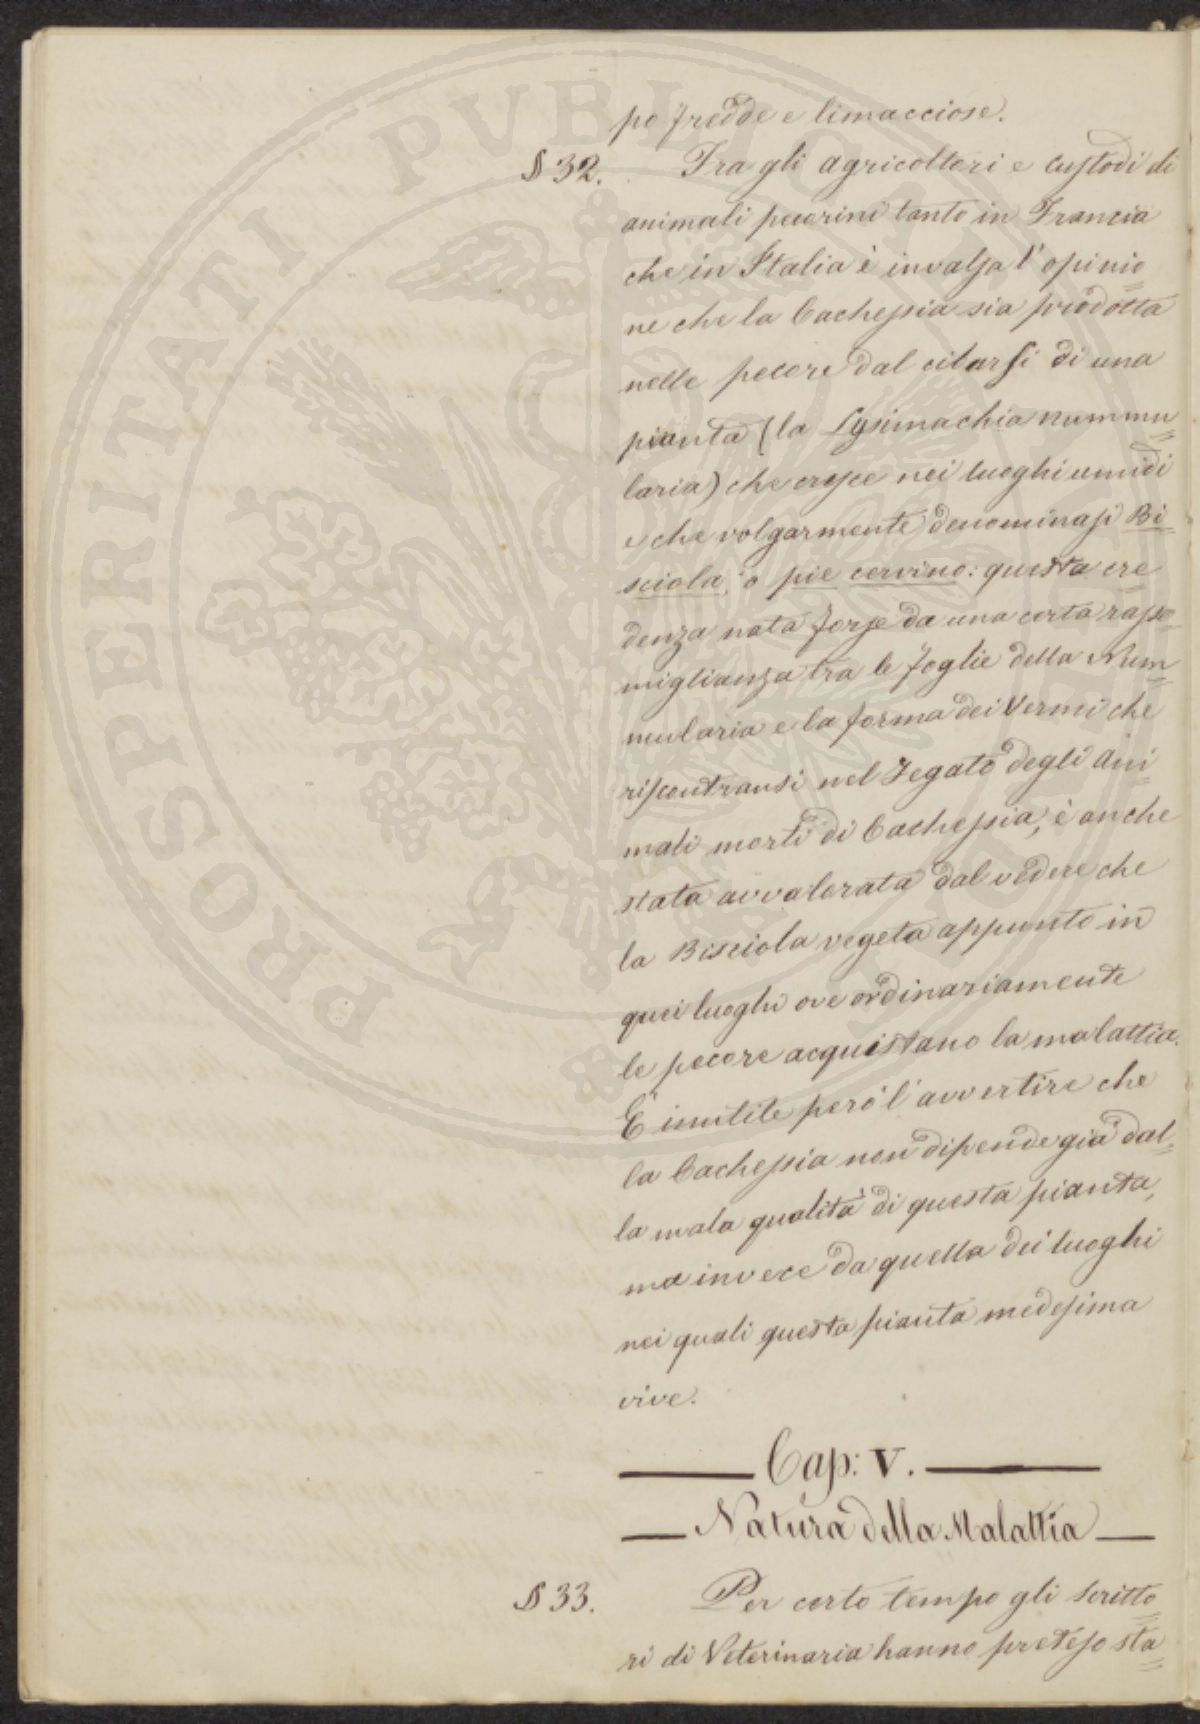 po fredde e limacciose.
§ 32. Tra gli agricoltori e custodi di
animali pecorini tanto in Francia
che in Italia è invalsa l'opinio
ne che la Cachessia sia prodotta
nelle pecore dal cibarsi di una
pianta (la Lysimachia nummu
laria) che cresce nei luoghi umidi
e che volgarmente denominasi Bi
sciola, o pie cervino: questa cre
denza nata forse da una certa rasso
miglianza tra le foglie della Num
mularia e la forma dei Vermi che
riscontransi nel Fegato degli Ani
mali morti di Cachessia, è anche
stata avvalorata dal vedere che
la Bisciola vegeta appunto in
quei luoghi ove ordinariamente
le pecore acquistano la malattia.
È inutile però l'avvertire che
la Cachessia non dipende già dal
la mala qualità di questa pianta,
ma invece da quella dei luoghi
nei quali questa pianta medesima
vive.
Cap: V.
Natura della Malattia
§ 33. Per certo tempo gli Scritto
ri di Veterinaria hanno preteso sta
PROSPERITATI PVBLICAE